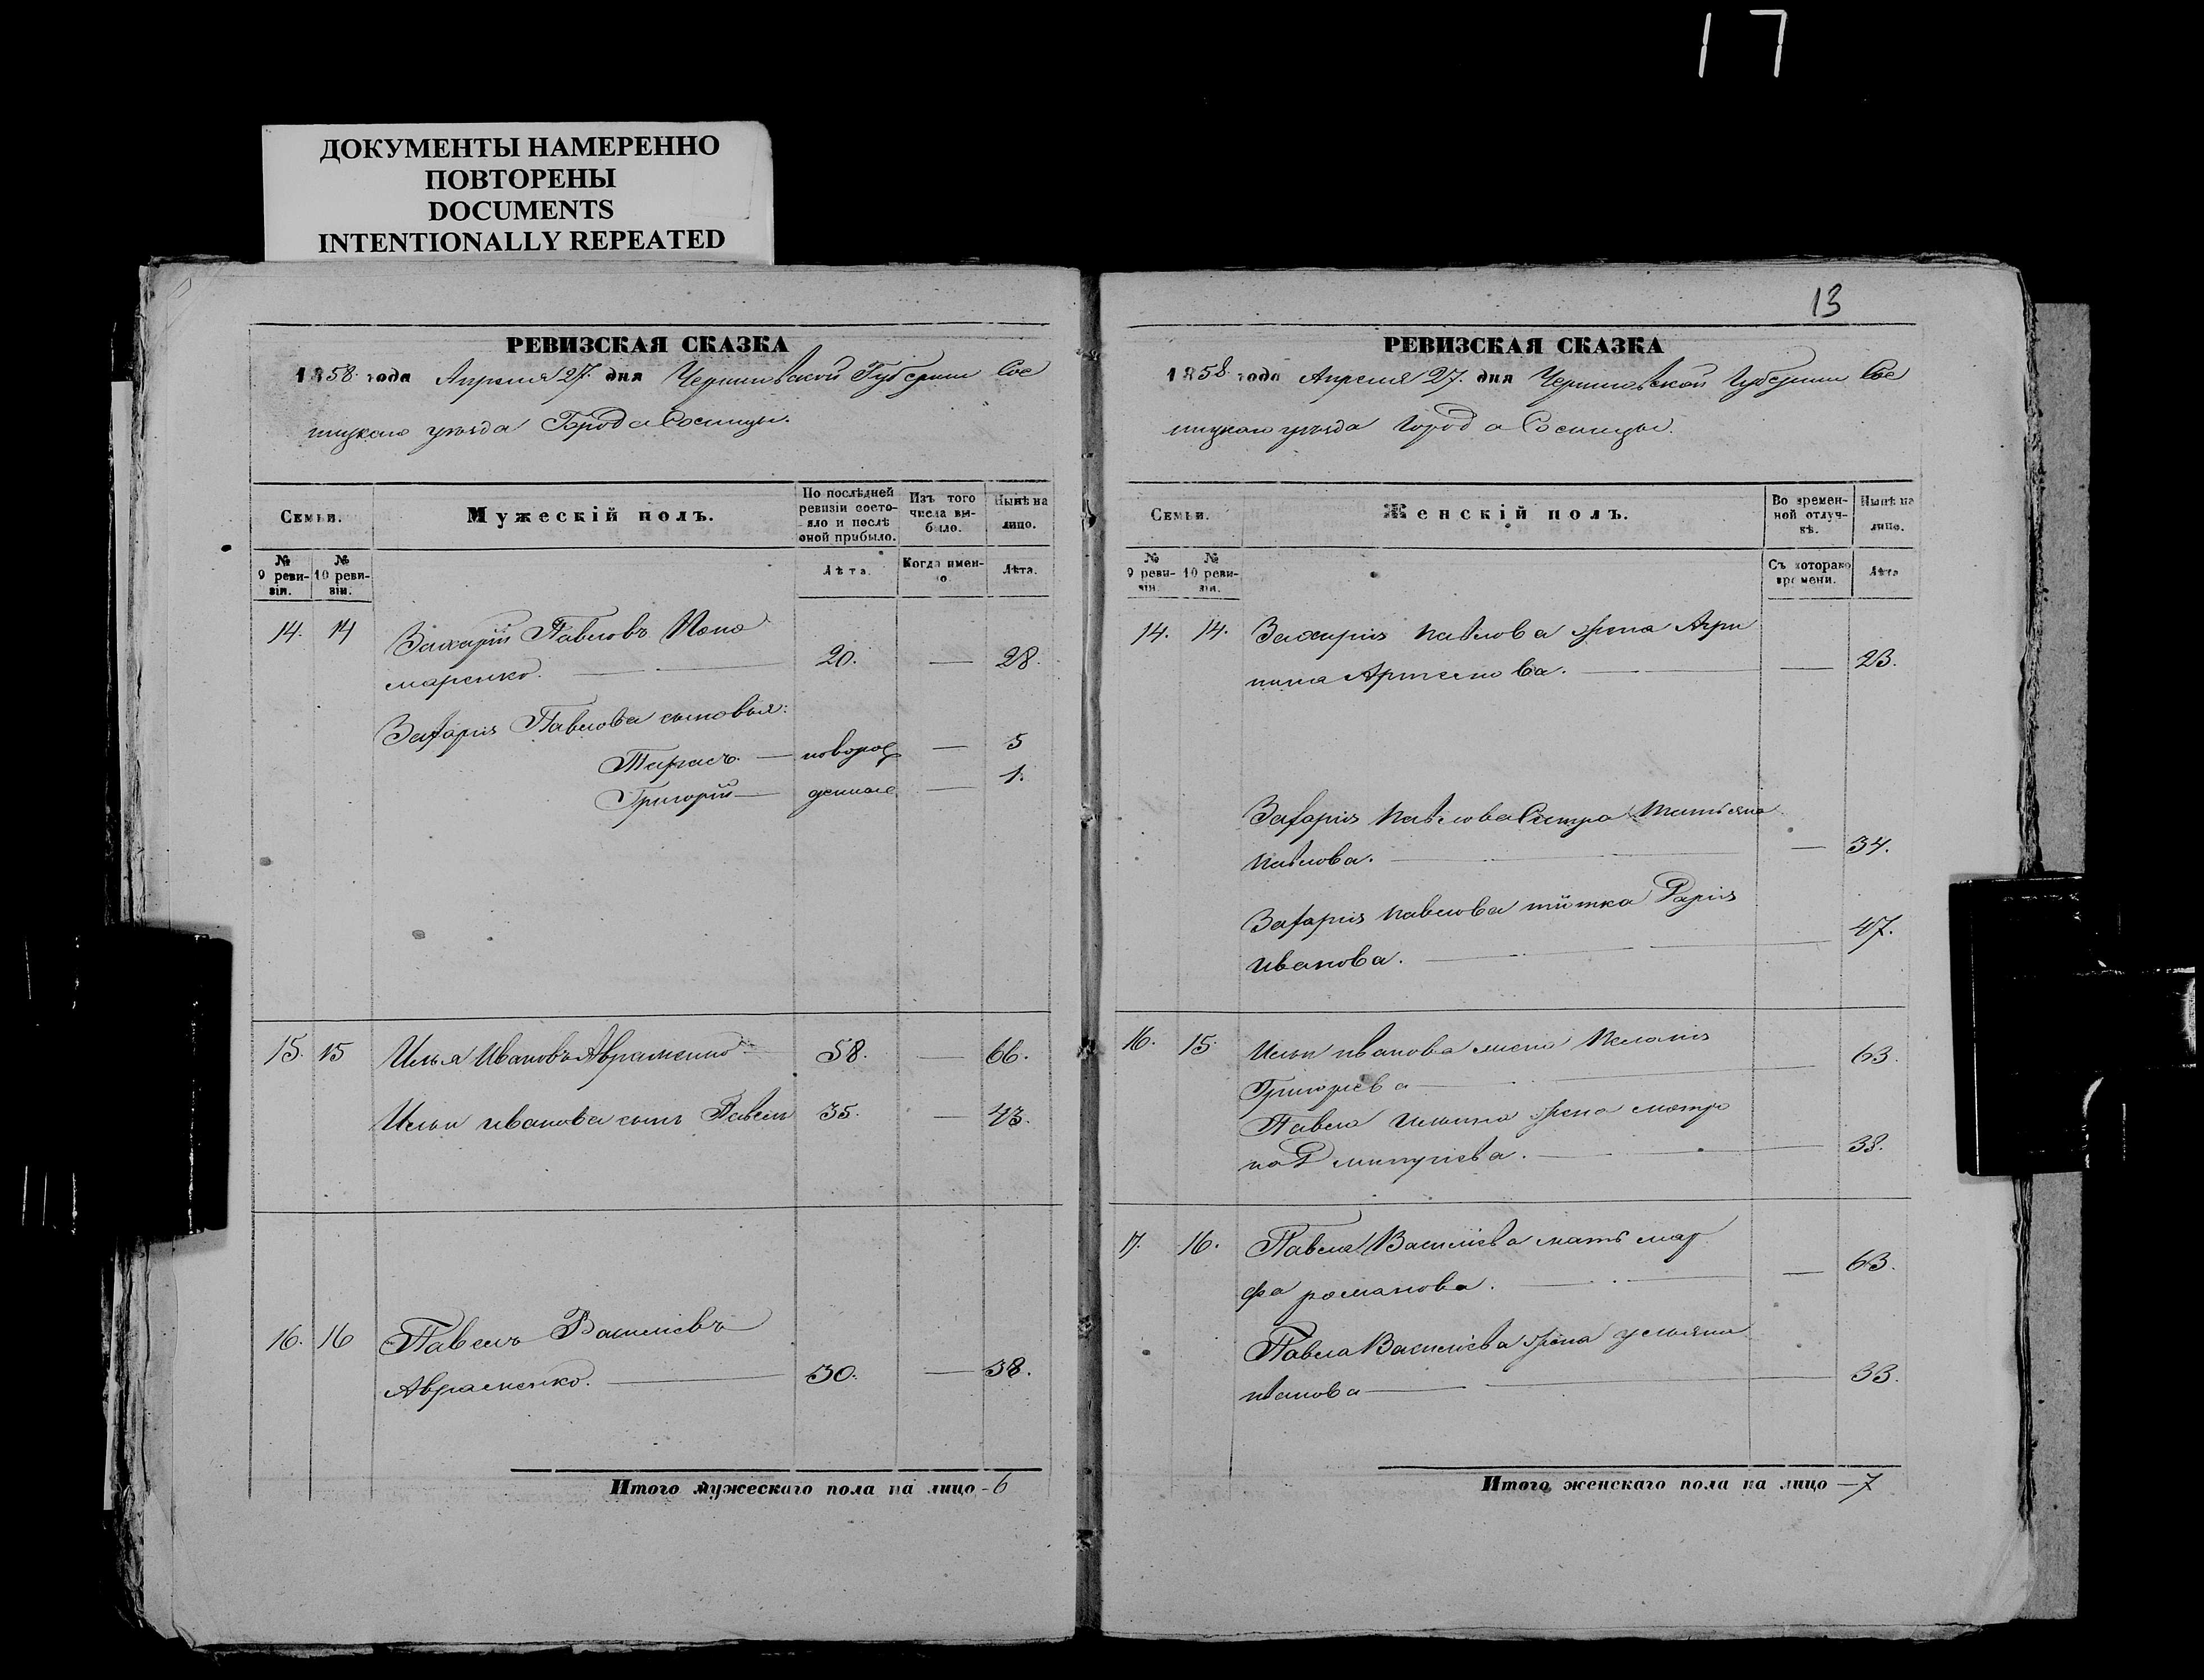 17
ДОКУМЕНТЫ НАМЕРЕННО
ПОВТОРЕНЫ
DOCUMENTS
INTENTIONALLY REPEATED
РЕВИЗСКАЯ СКАЗКА
1858 года Апреля 27. дня Черниговской Губернии Сос
ницкаго уѣзда Города Сосницы.
Семьи.
Мужескій полъ.
По послѣдней
ревизіи состо-
яло и послѣ
оной прибыло.
Изъ того
числа вы-
было.
Нынѣ на
лицо.
№
9 реви-
зіи.
№
10 реви-
зіи.
Лѣта.
Когда имен-
но.
Лѣта.
14. 14 Захарій Павловъ Поно
маренко. — 20. — 28.
Захарія Павлова сыновья:
Тарасъ. — новорож — 5
Григорій — денные — 1.
15. 15 Илья Ивановъ Авраменко 58. — 66.
Ильи Иванова сынъ Павелъ 35. — 43.
16. 16 Павелъ Василіевъ
Авраменко. — 30. — 38.
Итого мужескаго пола на лицо - 6
13
РЕВИЗСКАЯ СКАЗКА
1858 года Апреля 27. дня Черниговской Губернии Сос
ницкаго уѣзда Города Сосницы.
Семьи.
Женскій полъ.
Во времен-
ной отлуч-
кѣ.
Нынѣ на
лицо.
№
9 реви-
зіи.
№
10 реви-
зіи.
Съ котораго
времени.
Лѣта
14. 14. Захарія Павлова жена Агри
пина Артемова. — — 23.
Захарія Павлова Сестра Татьяна
Павлова. — — 34.
Захарія Павлова тіотка Дарія
Иванова. — 47.
16. 15. Ильи Иванова жена Меланія
Григорьева — 63.
Павла Ильина жена Мотро
на Дмитріева. — 38.
17. 16. Павла Василіева мать Мар
фа романова. — — 63.
Павла Василіева жена Ульяна
Иванова — 33.
Итого женскаго пола на лицо — 7